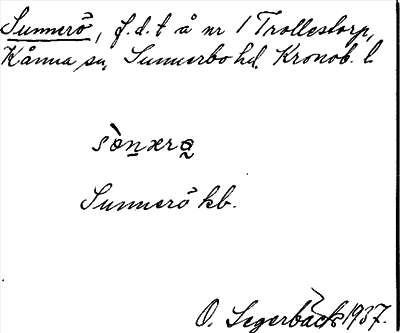 Sunnerö, f.d. t å nr 1 Trollestorp,
Kånna sn, Sunnerbo hd. Kronob. l.
sònxra
Sunnerö kb.
O. Segerbäck 1937.